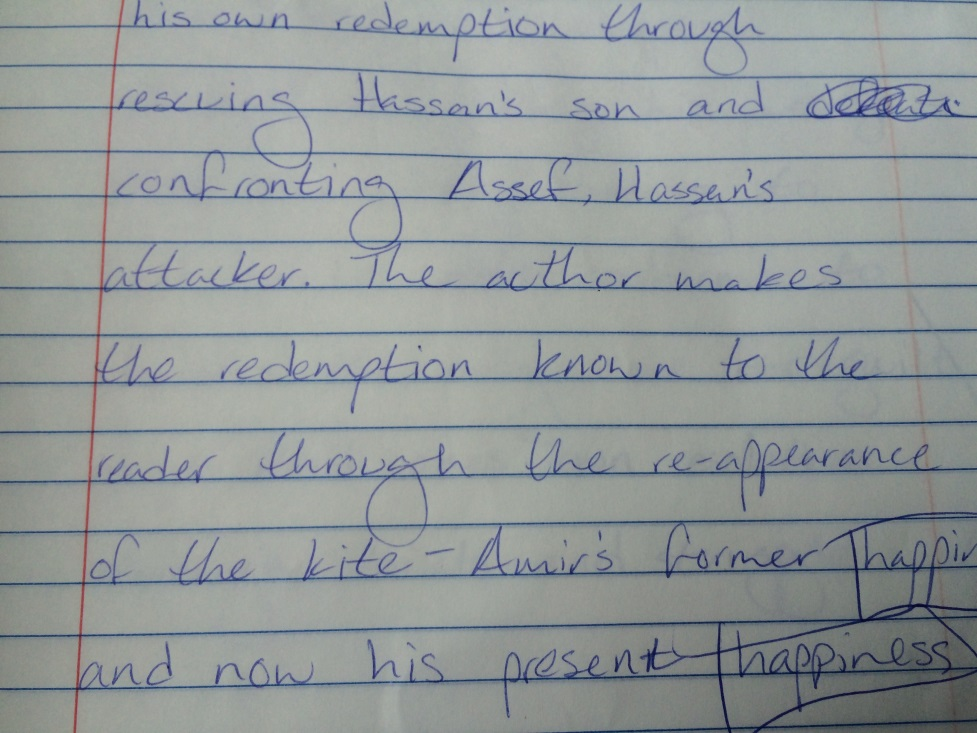 his own redemption through
rescuing Hassan's son and
confronting Assef, Hassan's
attacker. The author makes
the redemption known to the
reader through the re-appearance
of the kite - Amir's former happin
and now his present happiness